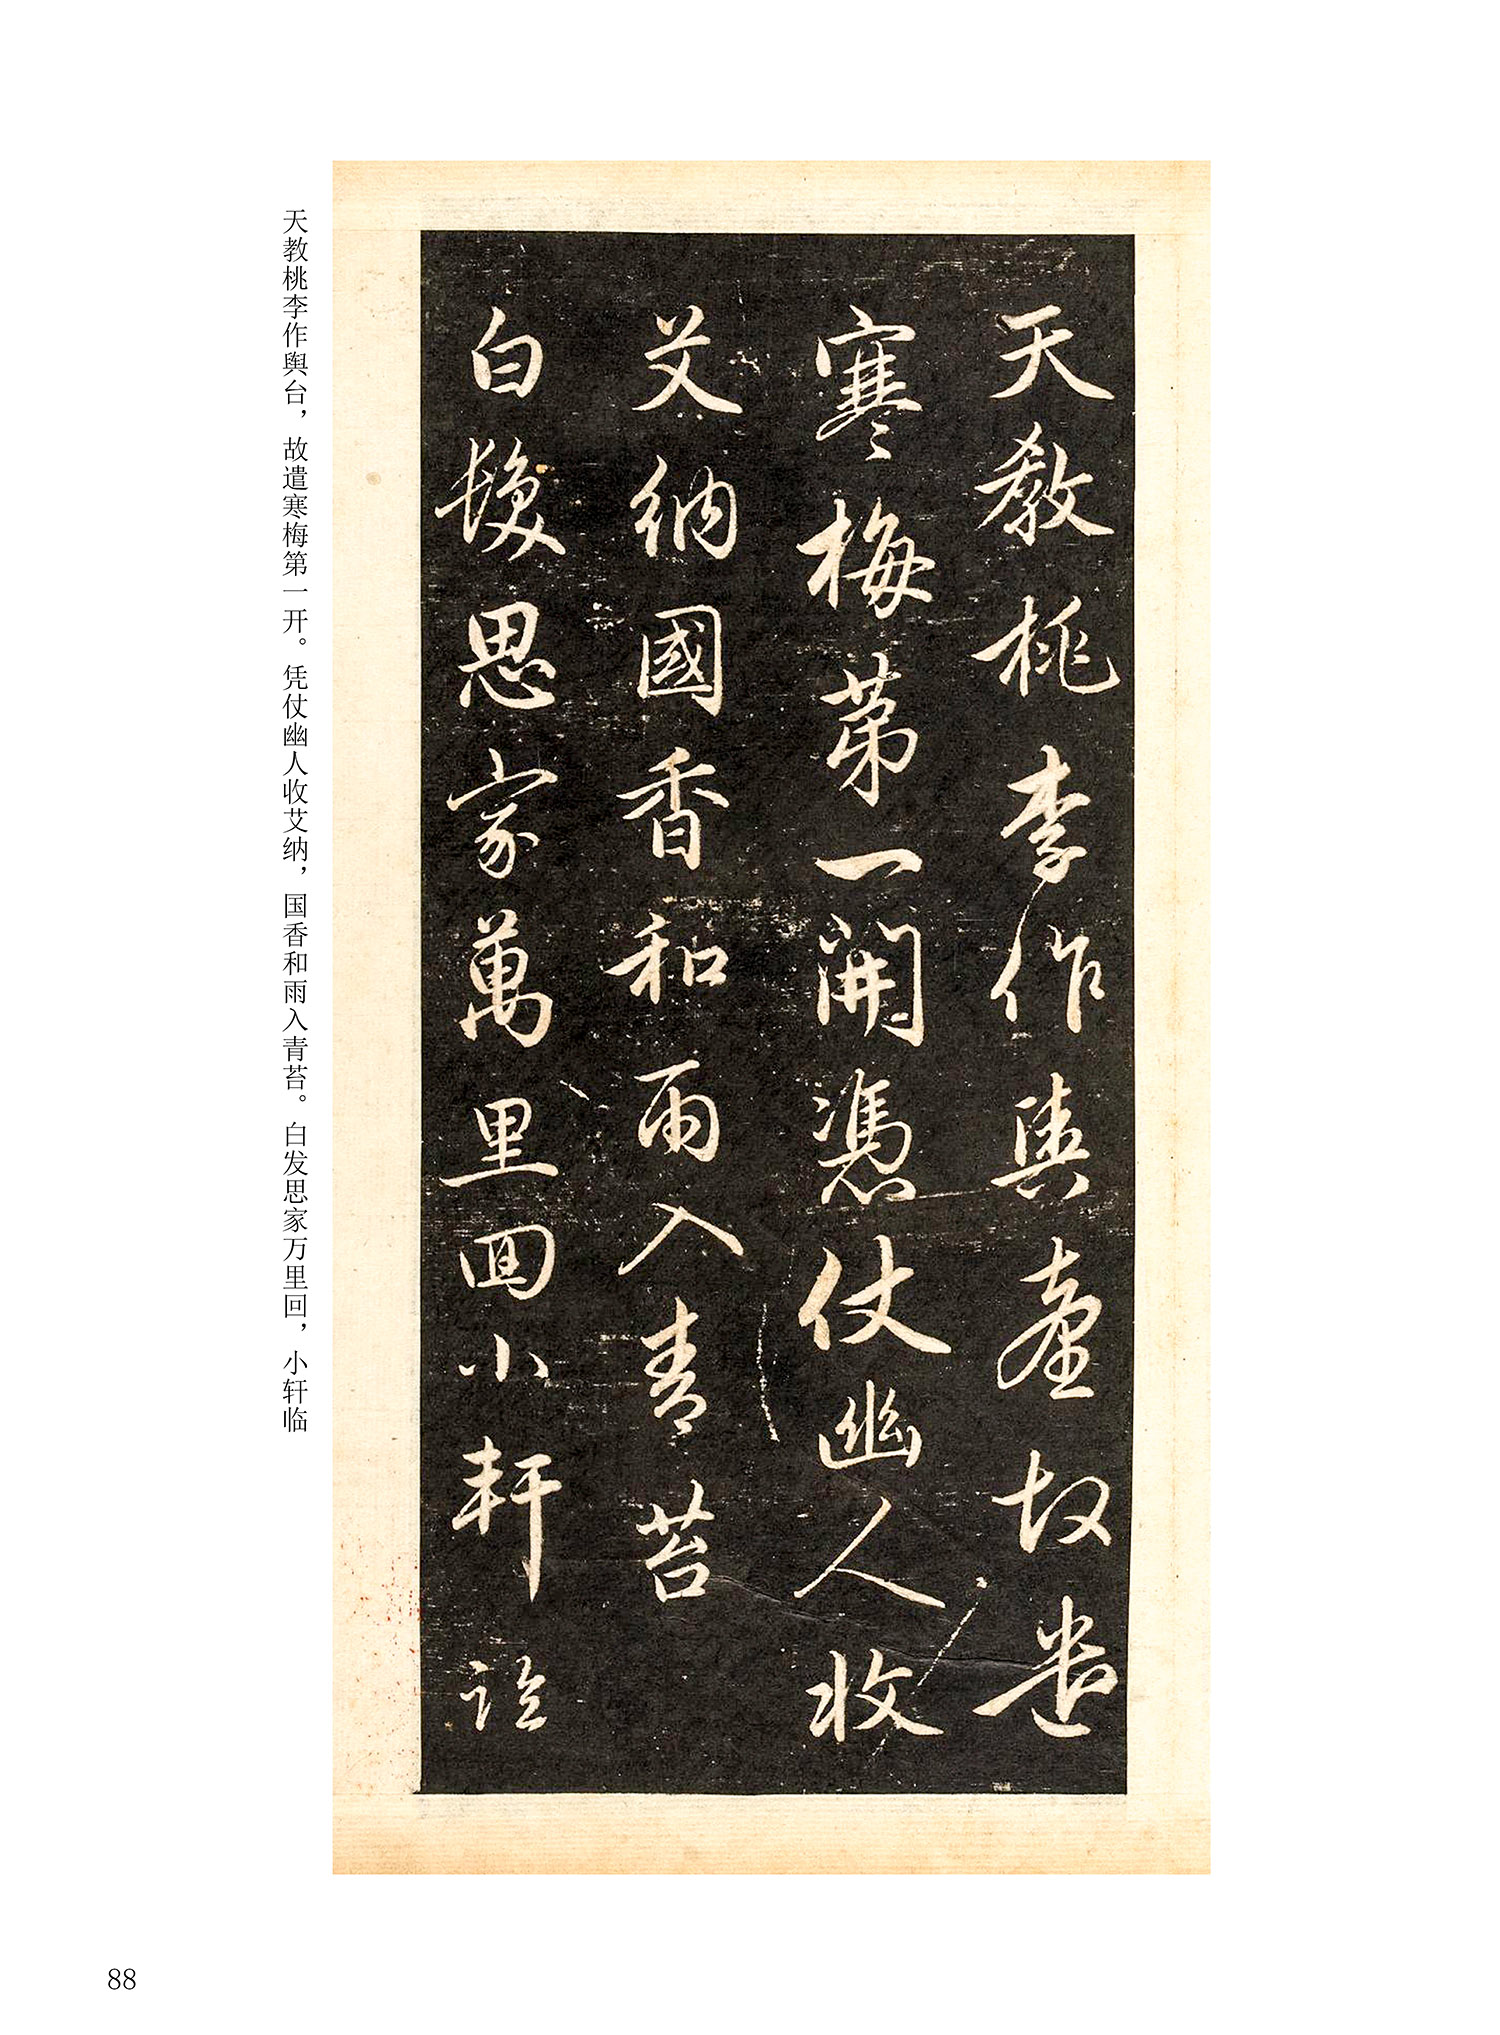 天教桃李作輿臺故遣
寒梅第一開憑仗幽人收
艾納國香和雨入青苔
白髮思家萬里回小軒臨
天教桃李作舆台，故遣寒梅第一开。凭仗幽人收艾纳，国香和雨入青苔。白发思家万里回，小轩临
88